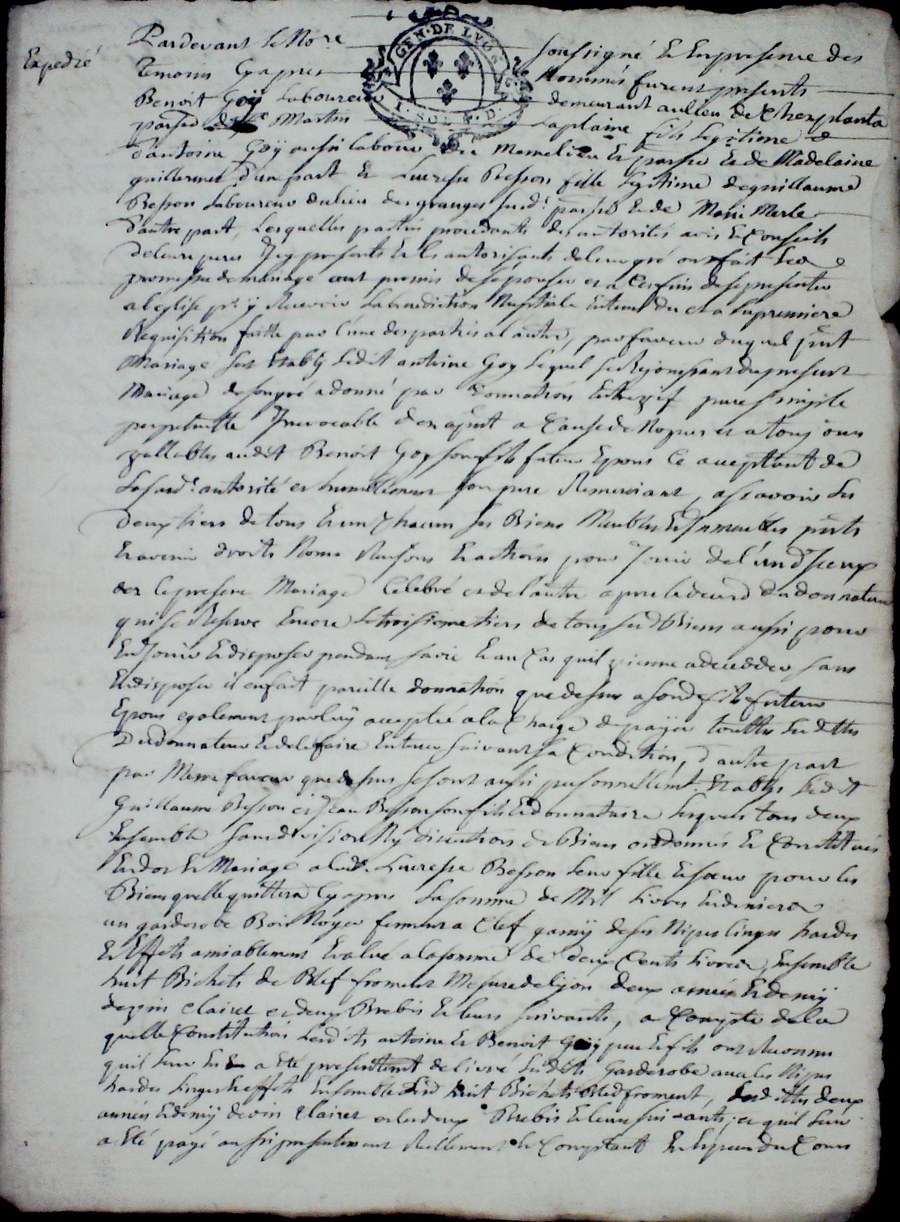 Expedié
Pardevant le No.re soussigné et en presence des
Temoins Cy apres Nommés furent presents
GEN. DE LYON
Benoit Goÿ Laboureur demeurant au lieu de
parr.se de S.t Martin Laplaine fils legitime de
d'antoine Goÿ aussi laboureur du parr.se et de Madelaine
guillermet d'une part Et Lucresse Besson fille legitime de guillaume
Besson Laboureur du lieu des granges susd.t parr.se et de Marie Merle
d'autre part, Lesquelles parties procedantes des autorités avis et Conseils
de leurs peres Icy presents et les autorisants de leur gré ont fait les
promesses de mariage ont promis de s'epouser et a Ces fins de se presenter
a l'eglise p.r y Recevoir la benediction Nuptiale Entre eux a la premiere
Requisition faitte par l'une des parties a l'autre, en faveur duquel futur
Mariage s'est Etably ledit antoine Goy lequel se Rejouissant du present
Mariage de son gré a donné par donnation Entrevif pure simple
perpetuelle Irrevocable d'en a Cause de Nopces et a toujours
vallable audit Benoit Goy son fils futur Epoux Ce acceptant de
la susd.te autorité et humblement son pere Remerciant, a scavoir les
deux tiers de tous Et un Chacun ses Biens Meubles Et Immeubles p.nts
Et avenir droits Noms Raisons Et actions pour Jouir de l'un d'Iceux
des le present Mariage Celebré et de l'autre apres le deces dud donnateur
qui se Reserve Encore le troisieme tiers de tous sesd Biens aussi pour
En Jouir Et disposer pendant sa vie Et au Cas qu'il vienne a deceder sans
En disposer il en fait pareille donnation que dessus a sondit fils futur
Epoux egalement par luy acceptée a la Charge de payer touttes les dettes
Dud donnateur Et de le faire Enterrer suivant sa Condition, d'autre part
par Meme faveur que dessus se sont aussi personnellem.t Etablis ledit
Guillaume Besson et Jean Besson son fils Et donnataire Lesquels tous deux
Ensemble sans division Ny discution de Biens ont donnés Et Constitués
En dot Et Mariage a lad. Lucresse Besson leur fille Et soeur pour les
Biens quelle quittera Cy apres La somme de Mil livres En deniers
un garderobe Bois Noyer fermant a Clef garny de ses Nipes linges hardes
Et Effets amiablement Evalué a la somme de deux Cents livres, Ensemble
huit Bichets de Bled froment Mesure de lyon deux années Et demy
de vin clairet et deux Brebis Et leurs suivants, a Compte de la
quelle Constitution Lesdits antoine Et Benoit Goÿ pere Et fils ont Reconnu
qu'il leur a Eté presentement delivré lesdits Garderobe avec les Nipes
hardes linges Et Effets Ensemble lesd huit Bichets Bled froment, lesdittes deux
années Et demy de vin Clairet et les deux Brebis Et leurs suivants, et qu'il leur
a Eté payé aussi presentement Reellement Et Comptant En Especes du Cours